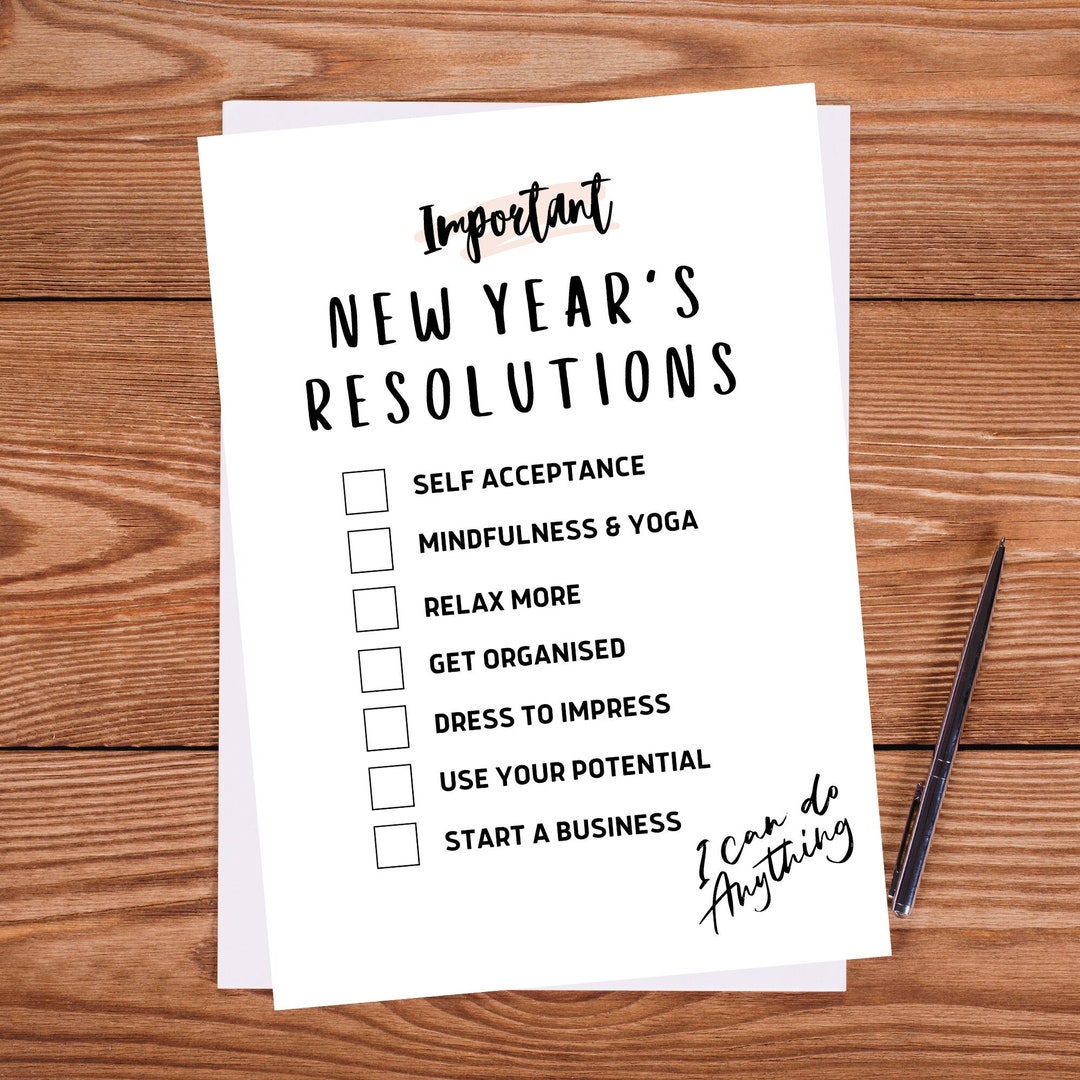 Important
NEW YEAR'S
RESOLUTIONS
SELF ACCEPTANCE
MINDFULNESS & YOGA
RELAX MORE
GET ORGANISED
DRESS TO IMPRESS
USE YOUR POTENTIAL
START A BUSINESS
I can do
Anything